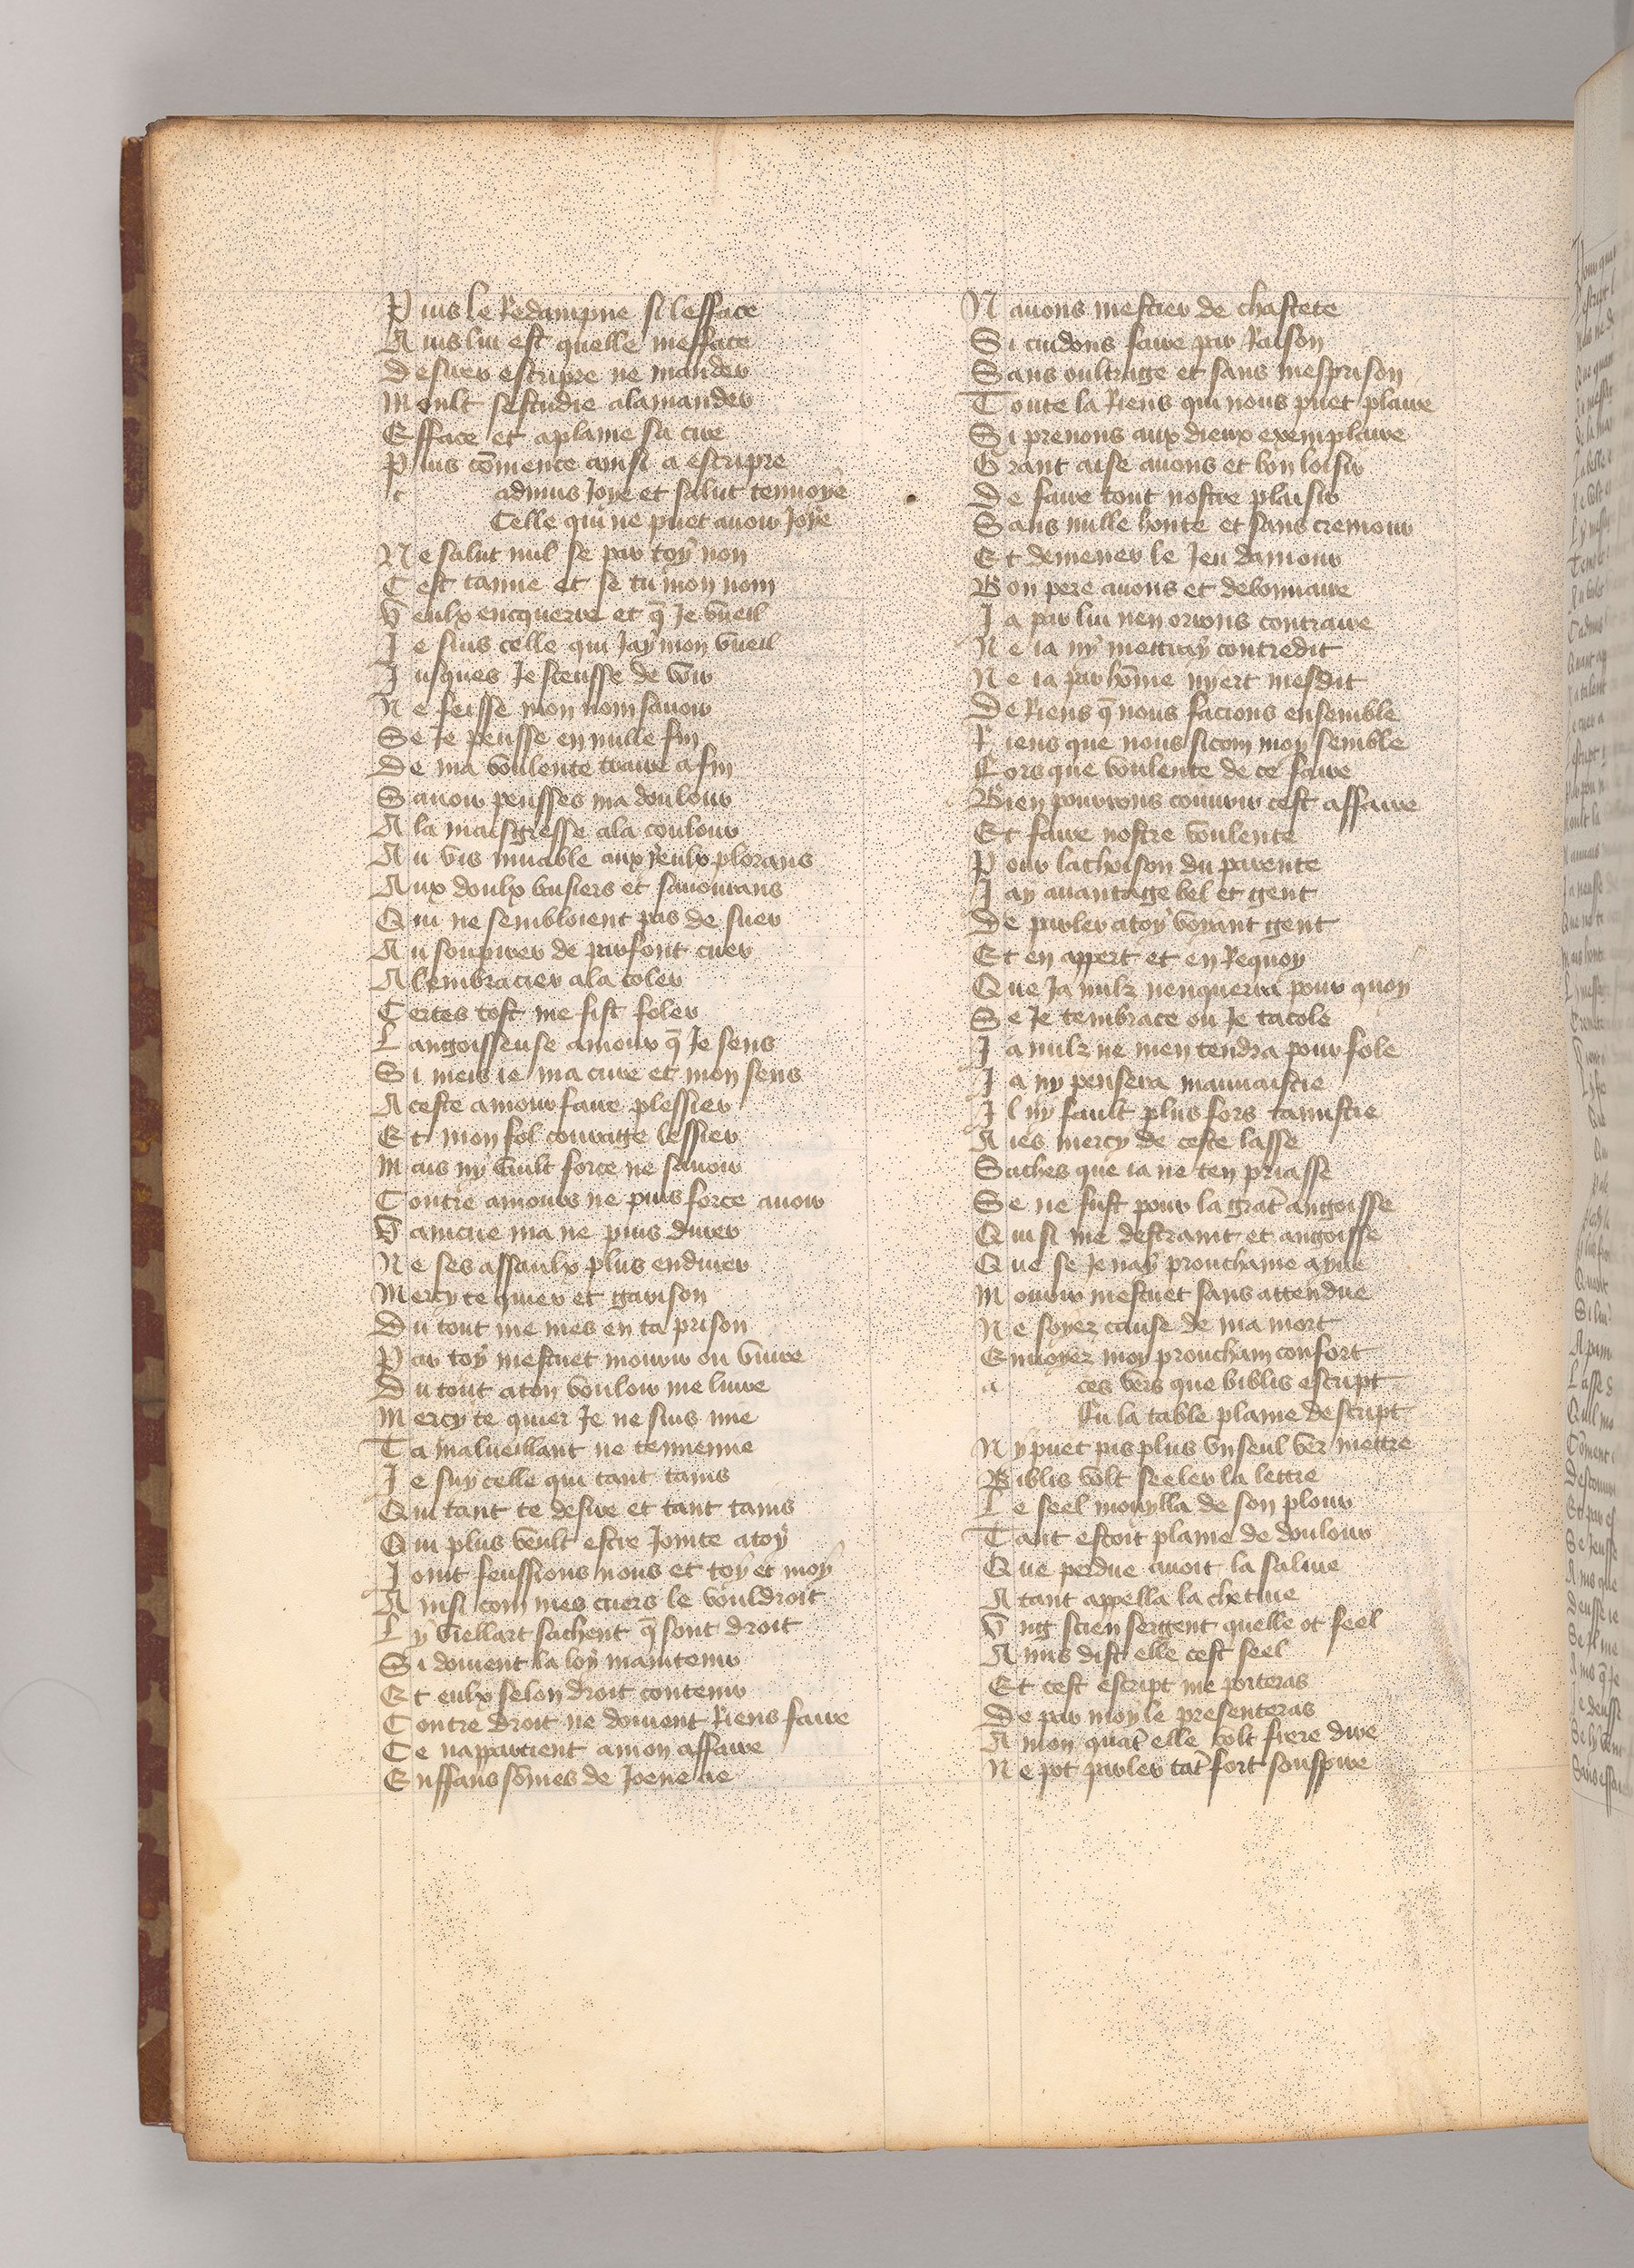 Puis le Redampne si lefface
Auis lui est quelle mefface
De suer escripre ne mander
Moult sestudie alamander
Efface et aplanie sa cire
Puis cõmence ainsi a escripre
c admus Joye et salut tenuoye
Celle qui ne puet auoir Joye
Ne salut nul se par toy non
Cest tamie et se tu mon nom
Veulx encquerre et q̃ Je vueil
Je suis celle qui Jay mon vueil
Jusques Je sceusse de voir
Ne feisse mon nom sauoir
Se Je peusse en nulle fin
De ma voulente traire afin
Sauoir peusses ma doulour
Ala maisgresse ala coulour
Au vis muable aux yeulx plorans
Aux doulx baisiers et sauourans
Qui ne sembloient pas de suer
Au souspirer de parfont cuer
Alembracier ala coler
Certes tost me fist foler
Langoisseuse amour q̃ Je sens
Si meis ie ma cure et mon sens
Aceste amour faire plessier
Et mon fol couraige lessier
Mais ny vault force ne sauoir
Contre amours ne puis force auoir
Vaincue ma ne puis durer
Ne ses assaulx plus endurer
Mercy te quier et garison
Du tout me mes en ta prison
Par toy mestuet mourir ou viure
Du tout aton vouloir me liure
Mercy te quier Je ne suis mie
Ta malueillant ne tennemie
Je suy celle qui tant tains
Qui tant te desire et tant tains
Qui plus veult estre Jointe atoy
Joint feussions nous et toy et moy
Ainsi com mes cuers le vouldroit
Ly viellart sachent q̃ sont droit
Si doiuent la loy maintenir
Et eulx selon droit contenir
Contre droit ne doiuent Riens faire
Ce nappartient amon affaire
Enffans sõmes de Joene ae
Nauons mestier de chastete
Si cuidons faire par Raison
Sans oultrage et sans mesprison
Toute la Riens qui nous puet plaire
Si prenons aux dieux exemplaire
Grant aise auons et bon loisir
De faire tout nostre plaisir
Sans nulle honte et sans cremour
Et demener le Jeu damour
Bon pere auons et debonnaire
Ja par lui nen orrons contraire
Ne ia ny mettray contredit
Ne ia par hõme nyert mesdit
De Riens q̃ nous facions ensemble
Riens que nous sicom moy semble
Fors que voulente de ce faire
Bien pourrons couurir cest affaire
Et faire nostre voulente
Pour lachoison du parente
Jay auantage bel et gent
De parler atoy voyant gent
Et en appert et en Requoy
Que Ja nulz nenquerra pour quoy
Se Je tembrace ou Je tacole
Ja nulz ne men tendra pour fole
Ja ny pensera mauuaistie
Il ny fault plus fors tamistie
Aies mercy de ceste lasse
Saches que ia ne ten priasse
Se ne fust pour la grãt angoisse
Qui si me destraint et angoisse
Que se Je nay prouchaine ayue
Mourir mestuet sans attendue
Ne soyez cause de ma mort
Enuoyez moy prouchain confort
a ces vers que biblis escript
En la table plaine descript
Ny puet pas plus vn seul ver mettre
Biblis volt seeler la lettre
Le seel mouylla de son plour
Tant estoit plaine de doulour
Que perdue auoit la saliue
Atant appella la chetiue
Vng scien sergent quelle ot feel
Amis dist elle cest seel
Et cest escript me porteras
De par moy le presenteras
Amon quãt elle volt frere dire
Ne pot parler tãt fort souspire